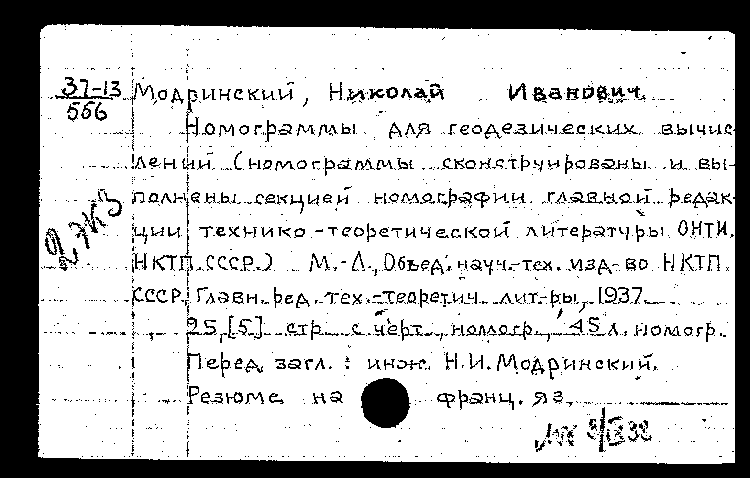 37-13
556
Модринский, Николай Иванович
Номограммы для геодезических вычис-
лений (номограммы сконструированы и вы-
полнены секцией номографии главной редак-
ции технико-теоретической литературы ОНТИ.
НКТП СССР.) М.-Л., Объед. науч.-тех. изд-во НКТП
СССР, Главн. ред. тех.-теоретич. лит-ры, 1937.
25, [5] стр. с черт., номогр., 45 л. номогр.
Перед загл.: инж. Н.И. Модринский.
Резюме на франц. яз.